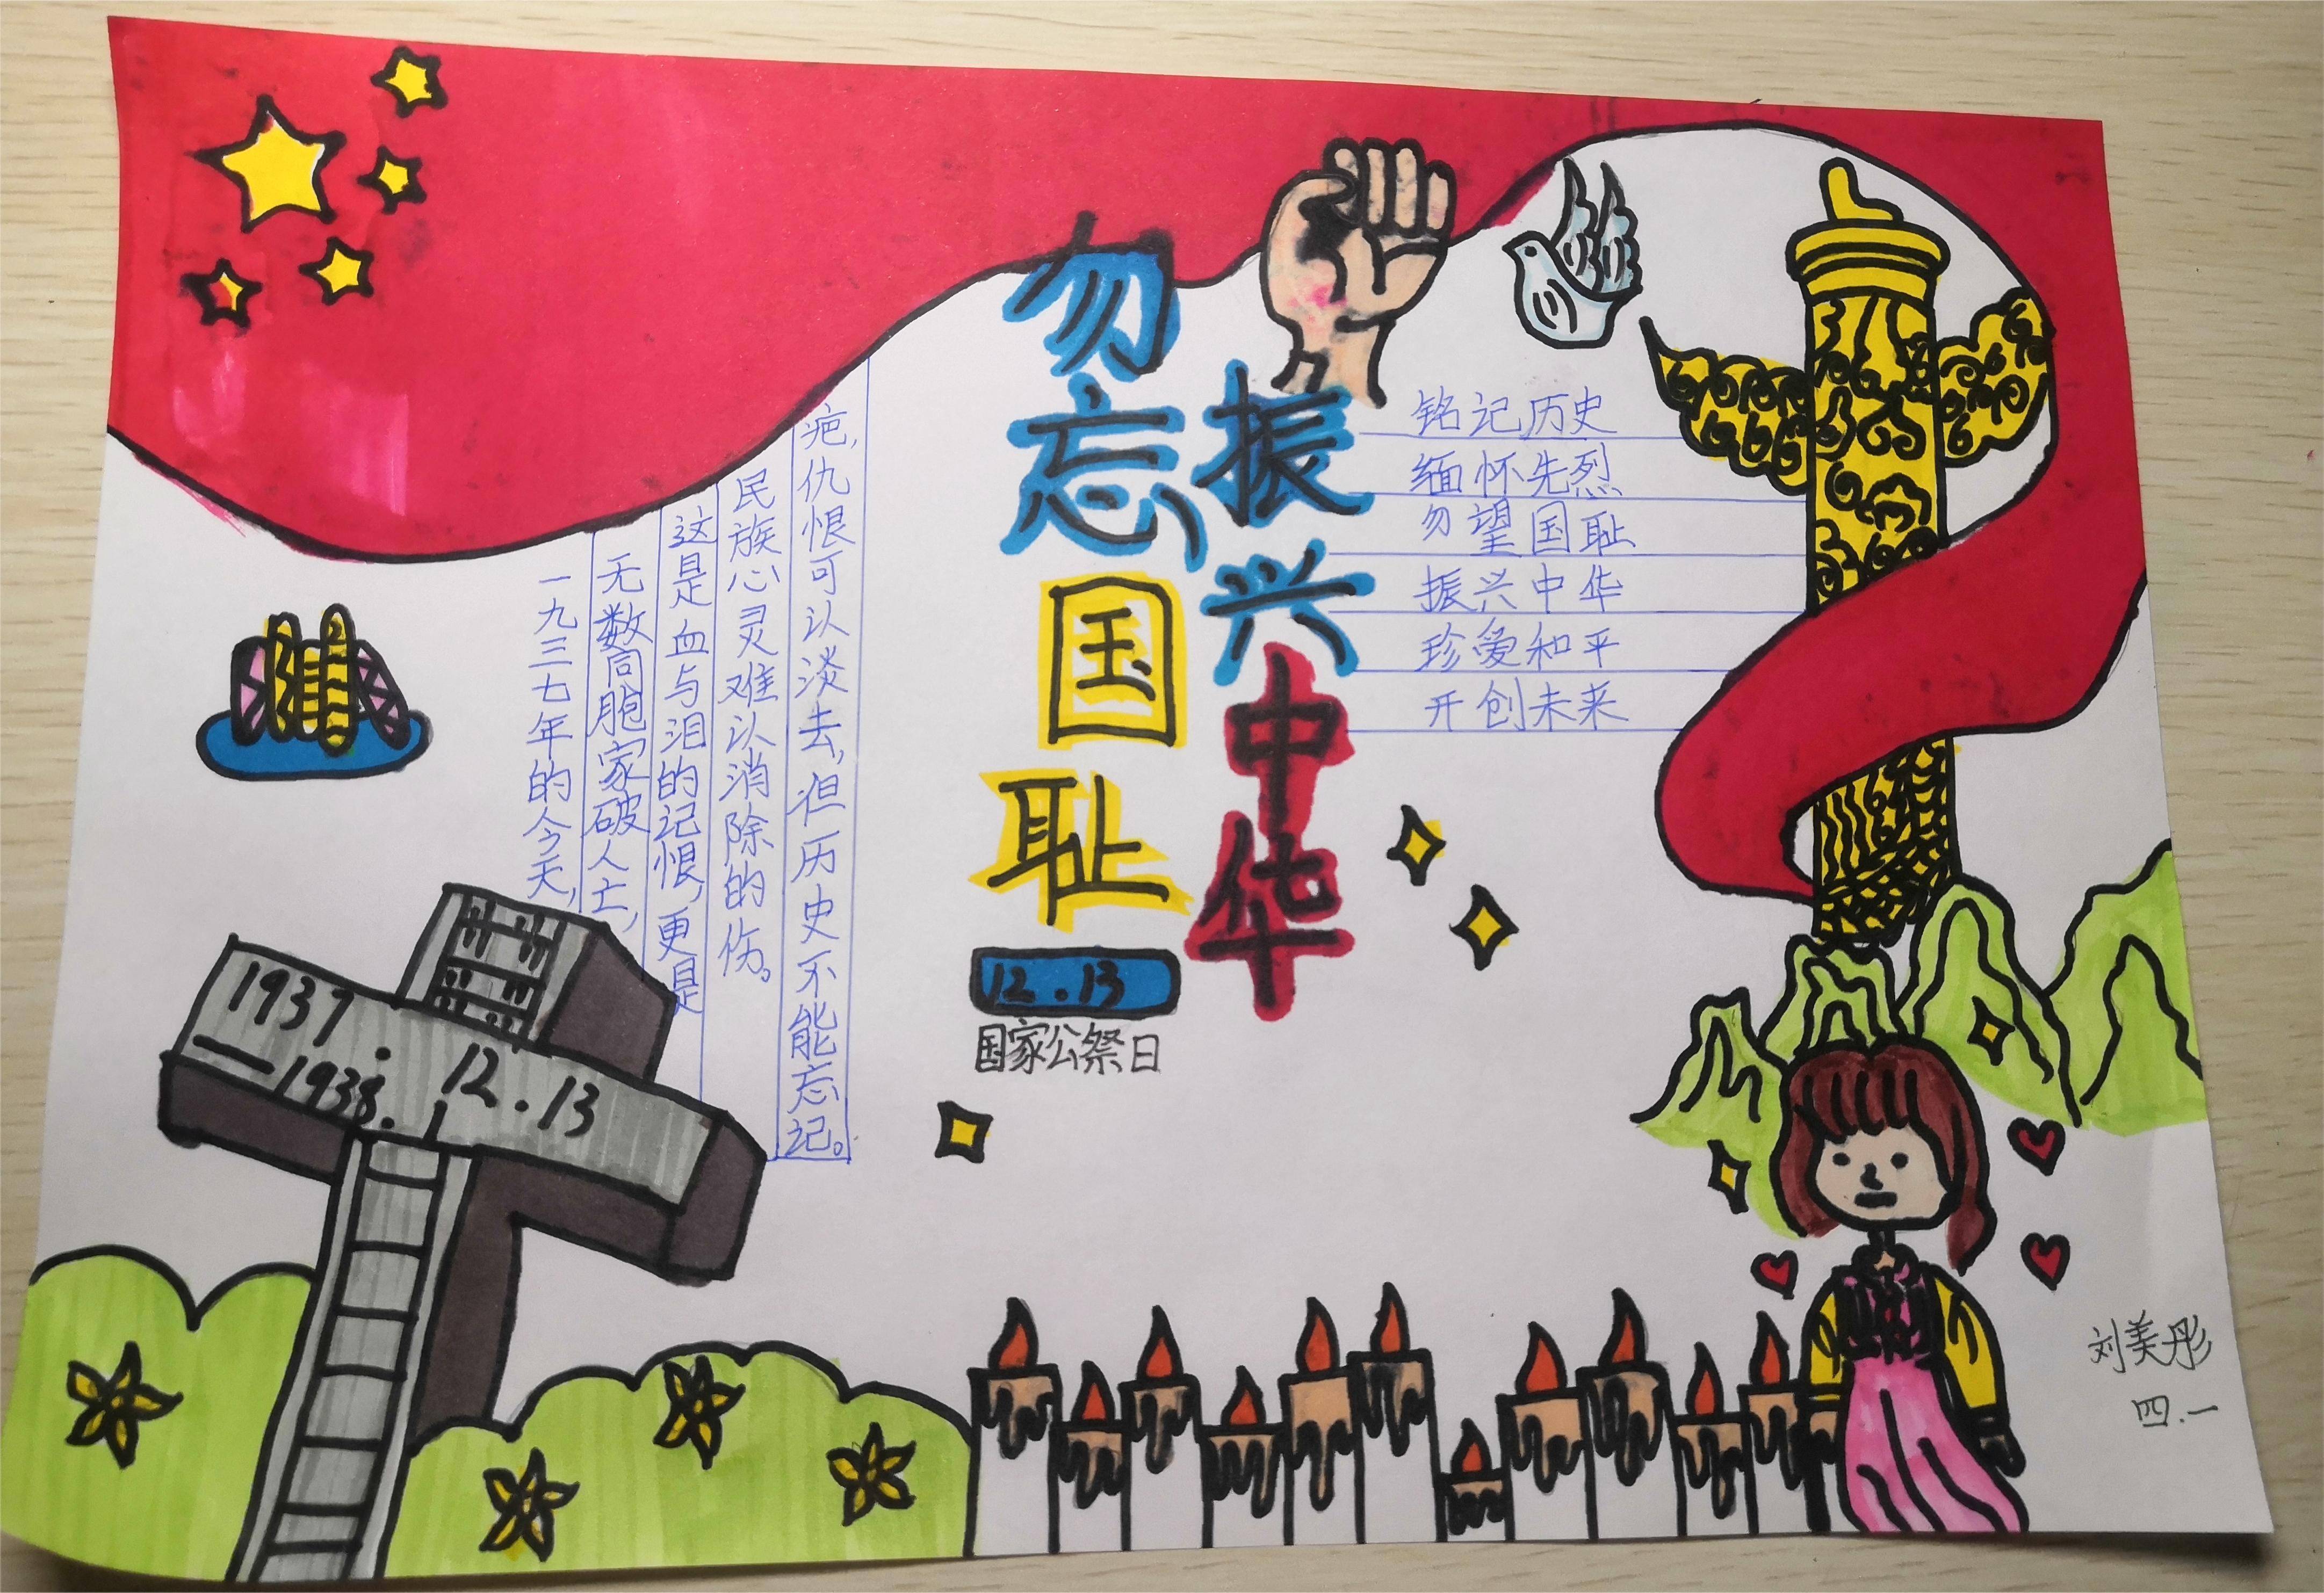 勿忘国耻
振兴中华
12.13
国家公祭日
一九三七年的今天，
无数同胞家破人亡，
这是血与泪的记恨，更是
民族心灵难以消除的伤。
疤，仇恨可以淡去，但历史不能忘记。
铭记历史
缅怀先烈
勿望国耻
振兴中华
珍爱和平
开创未来
1937.12.13
—1938.1
刘美彤
四.一